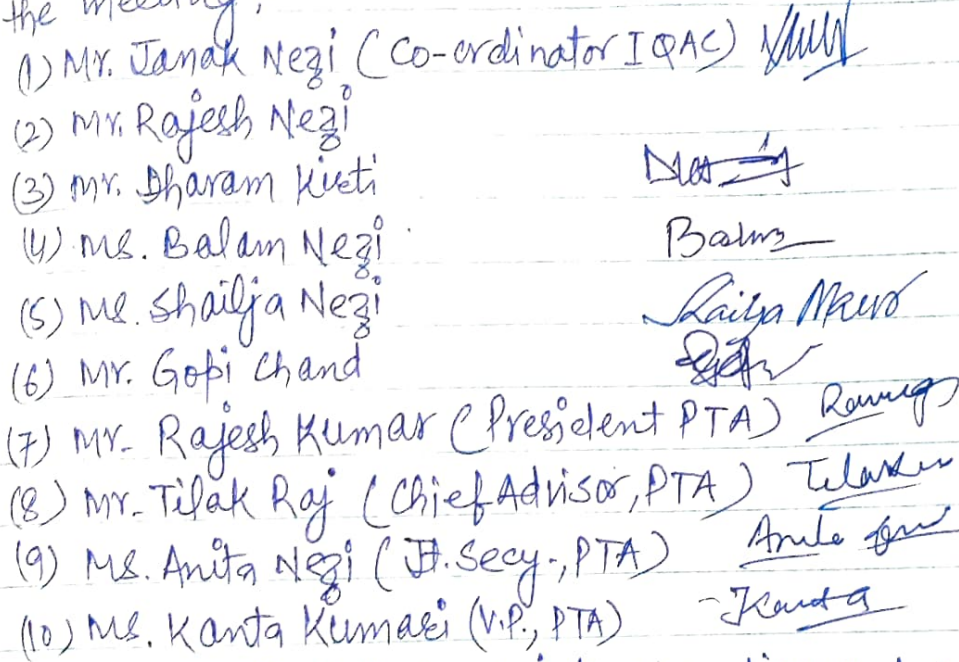 the meeting,
(1) Mr. Janak Negi (Co-ordinator IQAC)
(2) Mr. Rajesh Negi
(3) Mr. Dharam Kirti
(4) Ms. Balam Negi Balam
(5) Ms. Shailja Negi Shailja
(6) Mr. Gopi Chand
(7) Mr. Rajesh Kumar (President PTA)
(8) Mr. Tilak Raj (Chief Advisor, PTA)
(9) Ms. Anita Negi (Jt. Secy-, PTA)
(10) Ms. Kanta Kumari (V.P., PTA) Kanta